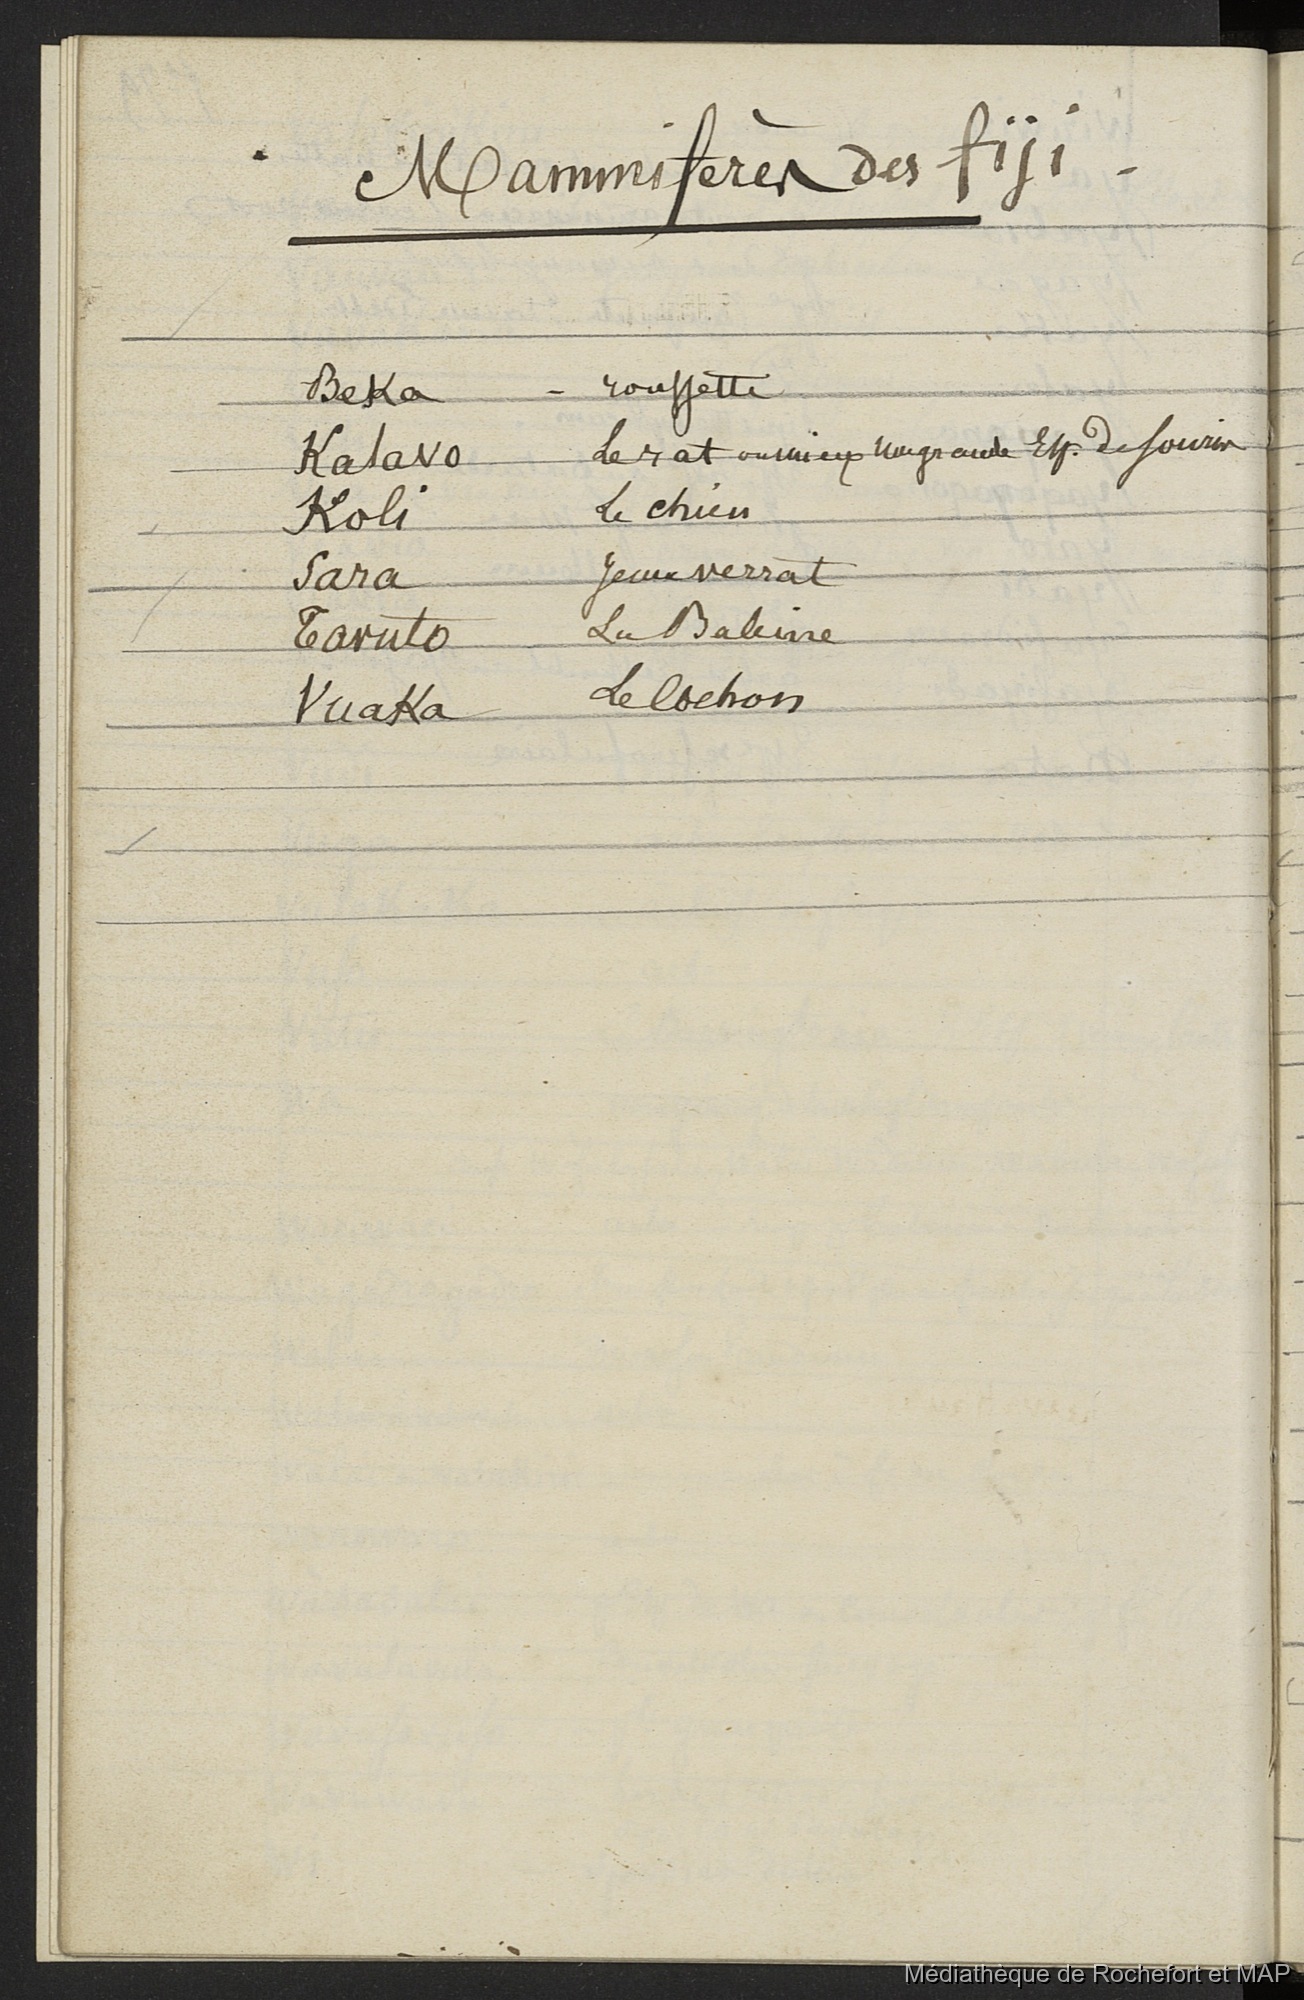 Mammifères des fiji -
Beka - roussette
Kalavo Le rat ou mieux une grande Esp. de souris
Koli Le chien
Sara Jeune verrat
Tavuto La Baleine
Vuaka Le Cochon
Médiathèque de Rochefort et MAP